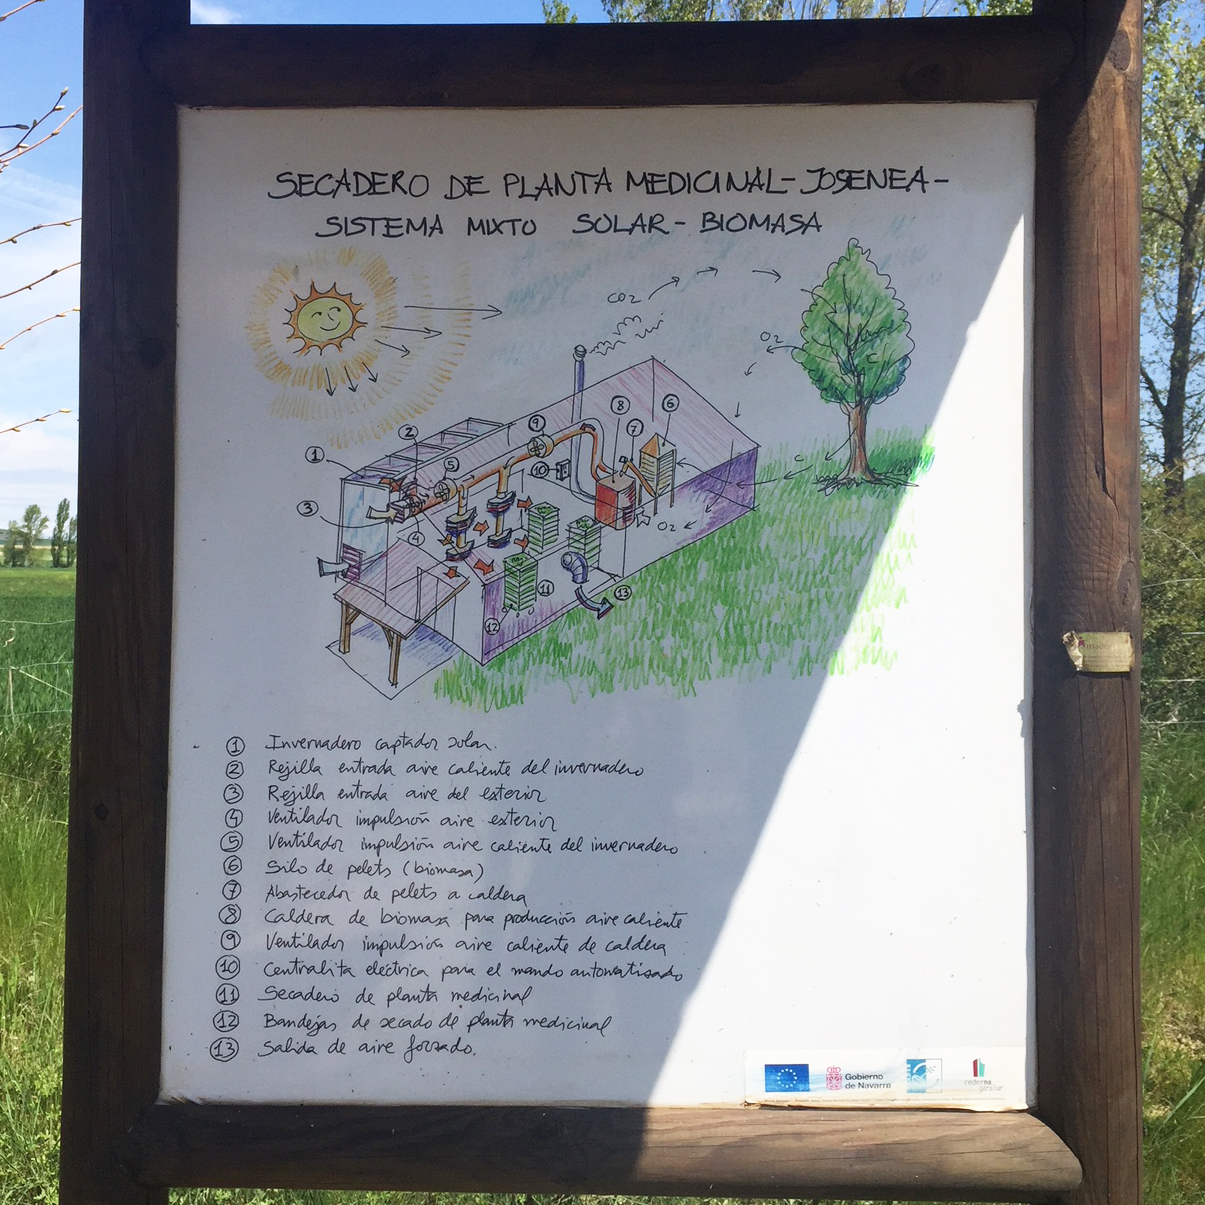 SECADERO DE PLANTA MEDICINAL-JOSENEA-
SISTEMA MIXTO SOLAR-BIOMASA
CO2
O2
8
6
9
7
2
1
5
10
3
4
O2
11
13
12
1 Invernadero captador solar.
2 Rejilla entrada aire caliente del invernadero
3 Rejilla entrada aire del exterior
4 Ventilador impulsión aire exterior
5 Ventilador impulsión aire caliente del invernadero
6 Silo de pelets (biomasa)
7 Abastecedor de pelets a caldera
8 Caldera de biomasa para producción aire caliente
9 Ventilador impulsión aire caliente de caldera
10 Centralita eléctrica para el mando automatizado
11 Secadero de planta medicinal
12 Bandejas de secado de planta medicinal
13 Salida de aire forzado.
Gobierno
de Navarra
cederna
garalur